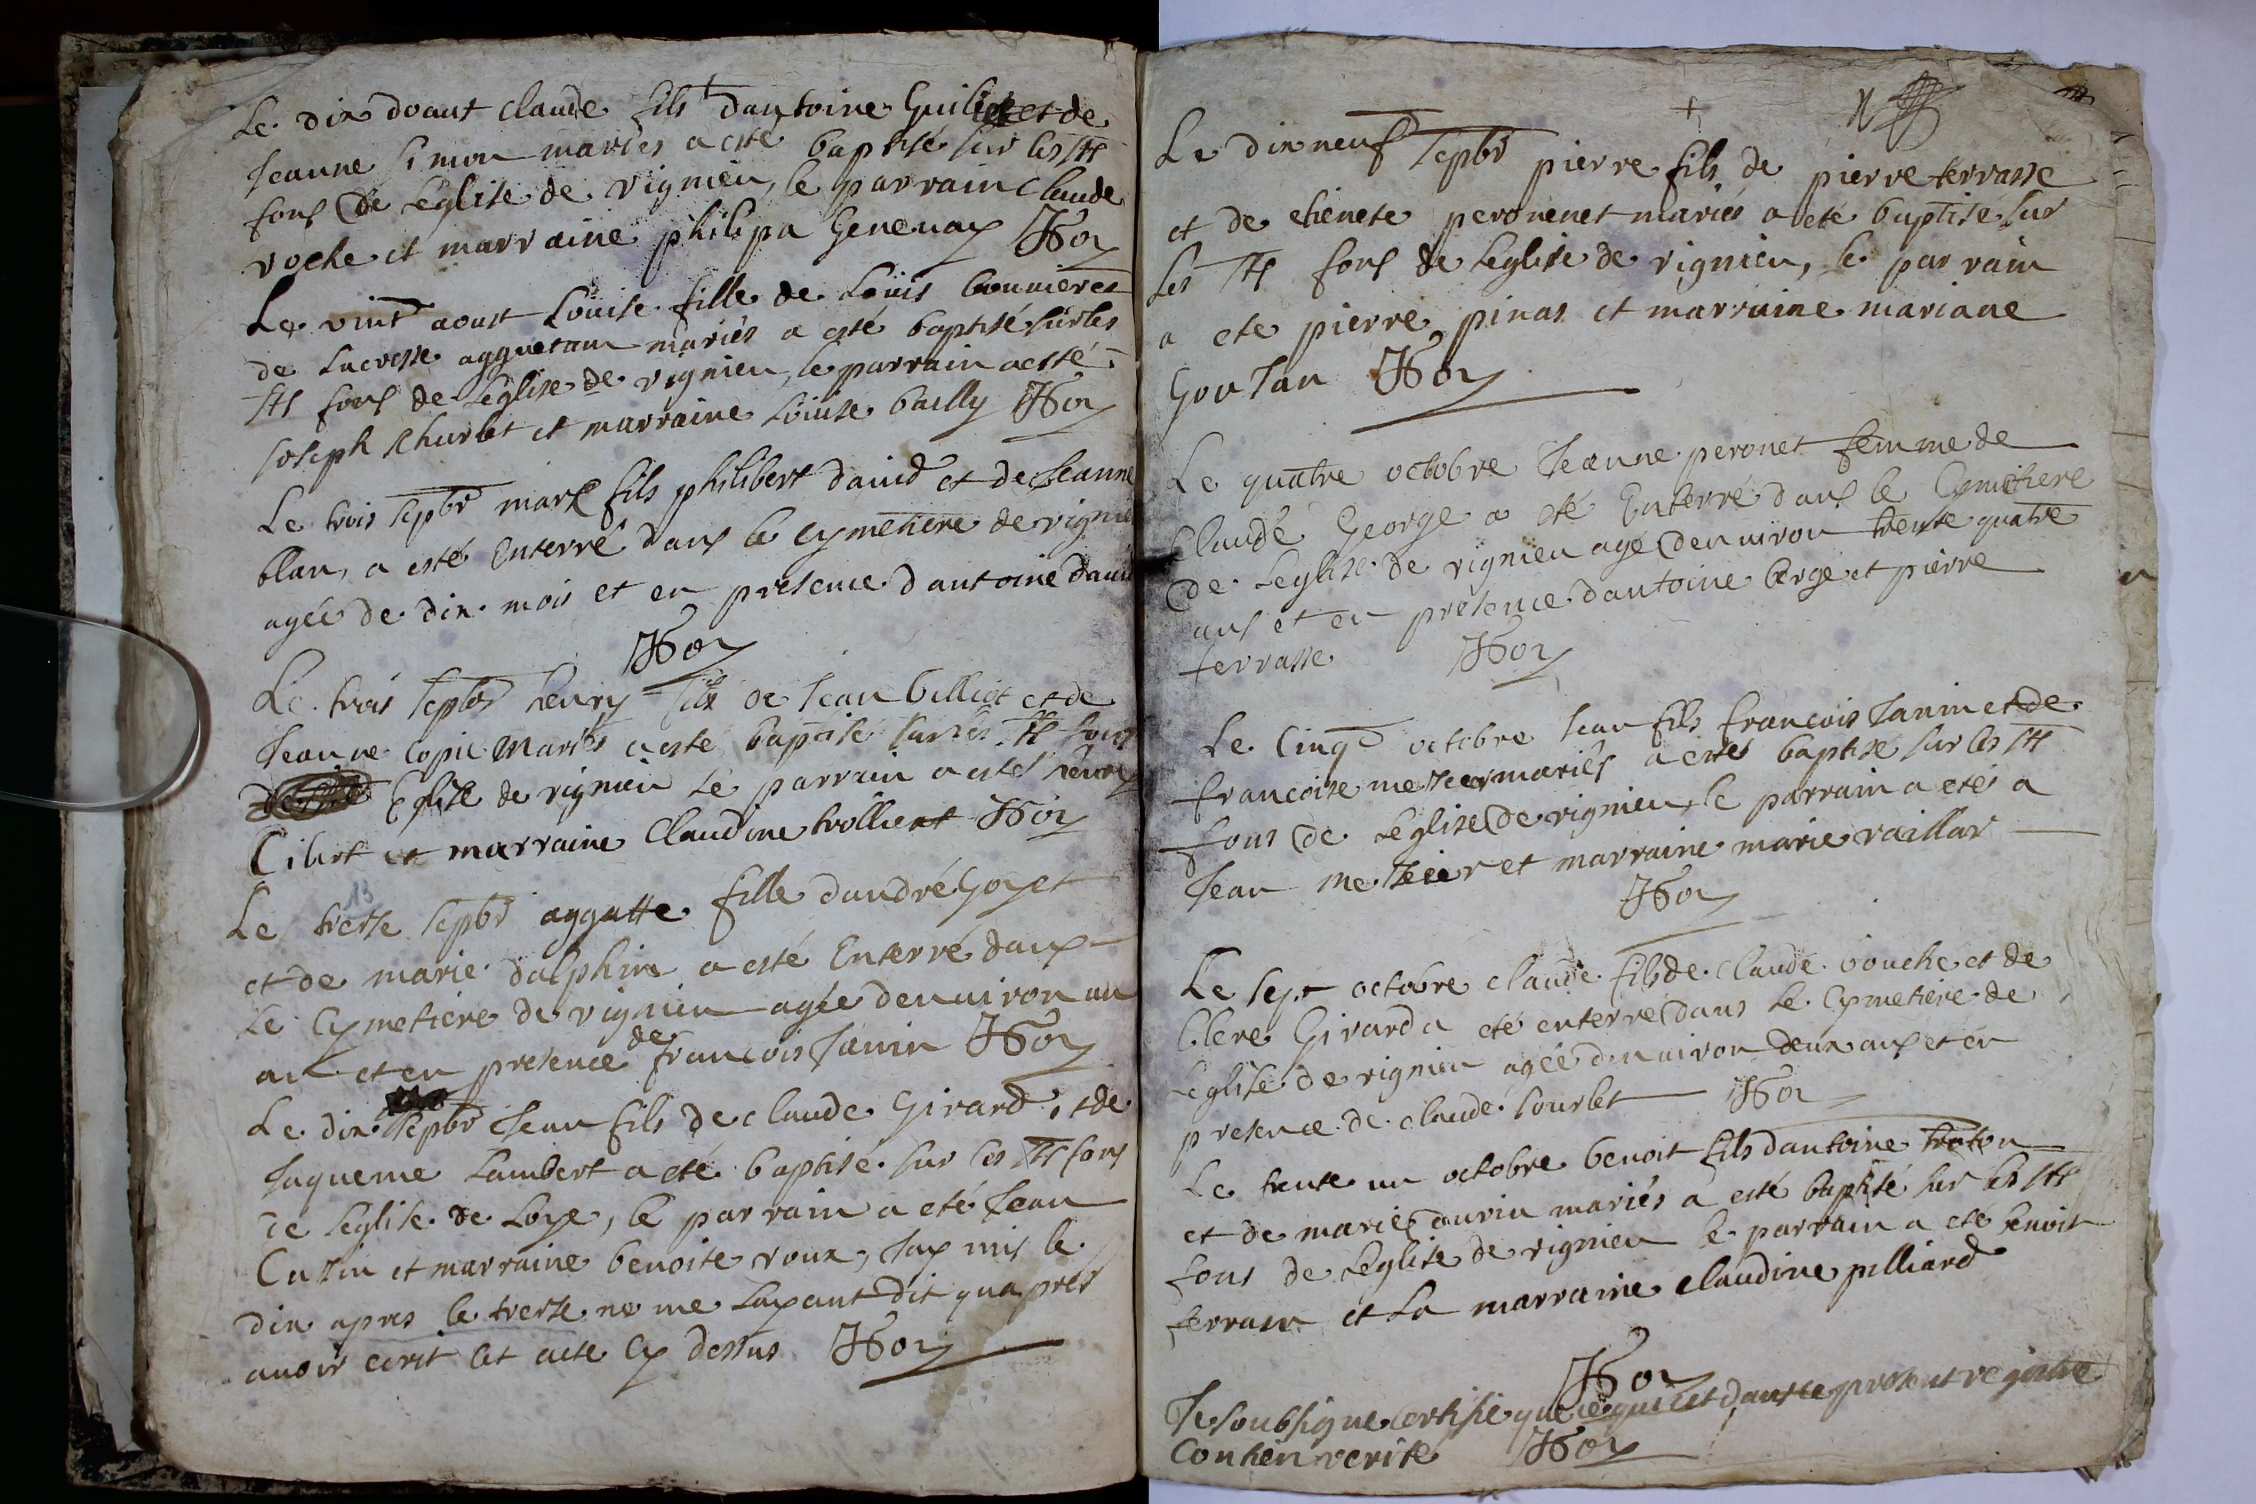 Le dix doaut claude fils dantoine Guiliet et de
Jeanne Simon mariés a esté baptisé sur les sts
fons de Leglise de vignieu, le parrain Claude
roche et marraine philipa Genenay
Le vint aoust Louise fille de Louis bonnieres
de Lucresse agguetam mariés a esté baptisé sur les
sts fons de Leglise de vignieu, le parrain a esté
Joseph et marraine Louise bailly
Le trois sepbr marx fils philibert david et de Jeanne
blan, a esté Enterré dans le cymetiere de vignieu
agée de dix mois et en presence dantoine david
Le trois sepbr henry fils de Jean billiot et de
Jeanne copie mariés a esté baptisé sur les sts fons
Eglise de vignieu Le parrain a esté henry
Cibert et marraine Claudine trollient
13
Le treise sepbr aggatte fille dandré Goyet
et de marie dalphin a esté Enterré dans
Le Cymetiere de vignieu agée denuiron un
an et en presence de francois Janin
Le dix sepbr Jean fils de claude Girard et de
Jaqueme Lambert a eté baptisé sur les sts fons
de leglise de Loye, le parrain a eté Jean
Cusin et marraine benoite roux, Jay mis le
dix apres le treise ne me Layant dit quapres
auoir ecrit cet acte Cy dessus
Le dix neuf sepbr pierre fils de pierre terrasse
et de etienete peronenet mariés a eté baptisé sur
Les sts fons de Leglise de vignieu, le parrain
a ete pierre pinas et marraine mariane
Goujan
Le quatre octobre Jeanne peronet femme de
Claude George a eté Enterré dans le Cymetiere
de Leglise de vignieu agé denuiron trente quatre
ans et en presence dantoine berge et pierre
terrasse
Le Cinq octobre Jean fils francois Janin et de
francoise messier mariés a etés baptisé sur les sts
fons de Leglise de vignieu, le parrain a etés a
Jean messier et marraine marie vaillar
Le sept octobre claude fils de Claude bouche et de
Clere Girard a eté enterré dans Le Cymetiere de
Leglise de vignieu agée denuiron deux ans et en
presence de claude Lourbet
Le trente un octobre benoit fils dantoine traton
et de marie durin mariés a esté baptisé sur les sts
fons de Leglise de vignieu le parrain a eté benoit
terrasse et La marraine claudine pilliard
Je soubsigne Certifie que ce qui est dans ce present registre
Contien verité